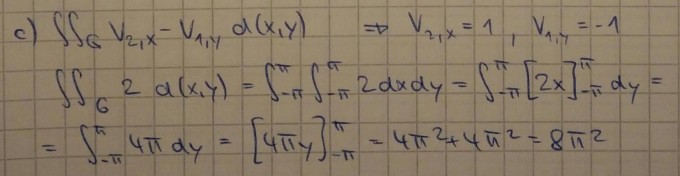 c) ∬_G V_{2,x} - V_{1,y} d(x,y) ⇒ V_{2,x} = 1 , V_{1,y} = -1
∬_G 2 d(x,y) = ∫_{-π}^{π} ∫_{-π}^{π} 2 dx dy = ∫_{-π}^{π} [2x]_{-π}^{π} dy =
= ∫_{-π}^{π} 4π dy = [4πy]_{-π}^{π} = 4π² + 4π² = 8π²